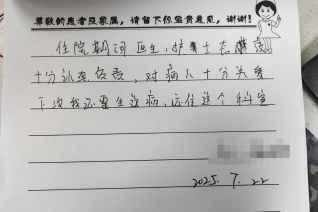 尊敬的患者及家属，请留下你宝贵意见，谢谢！
住院期间医生，护士态度
十分认真负责，对病人十分关爱
下次我还要生这病，还住这个科室
2025.7.22